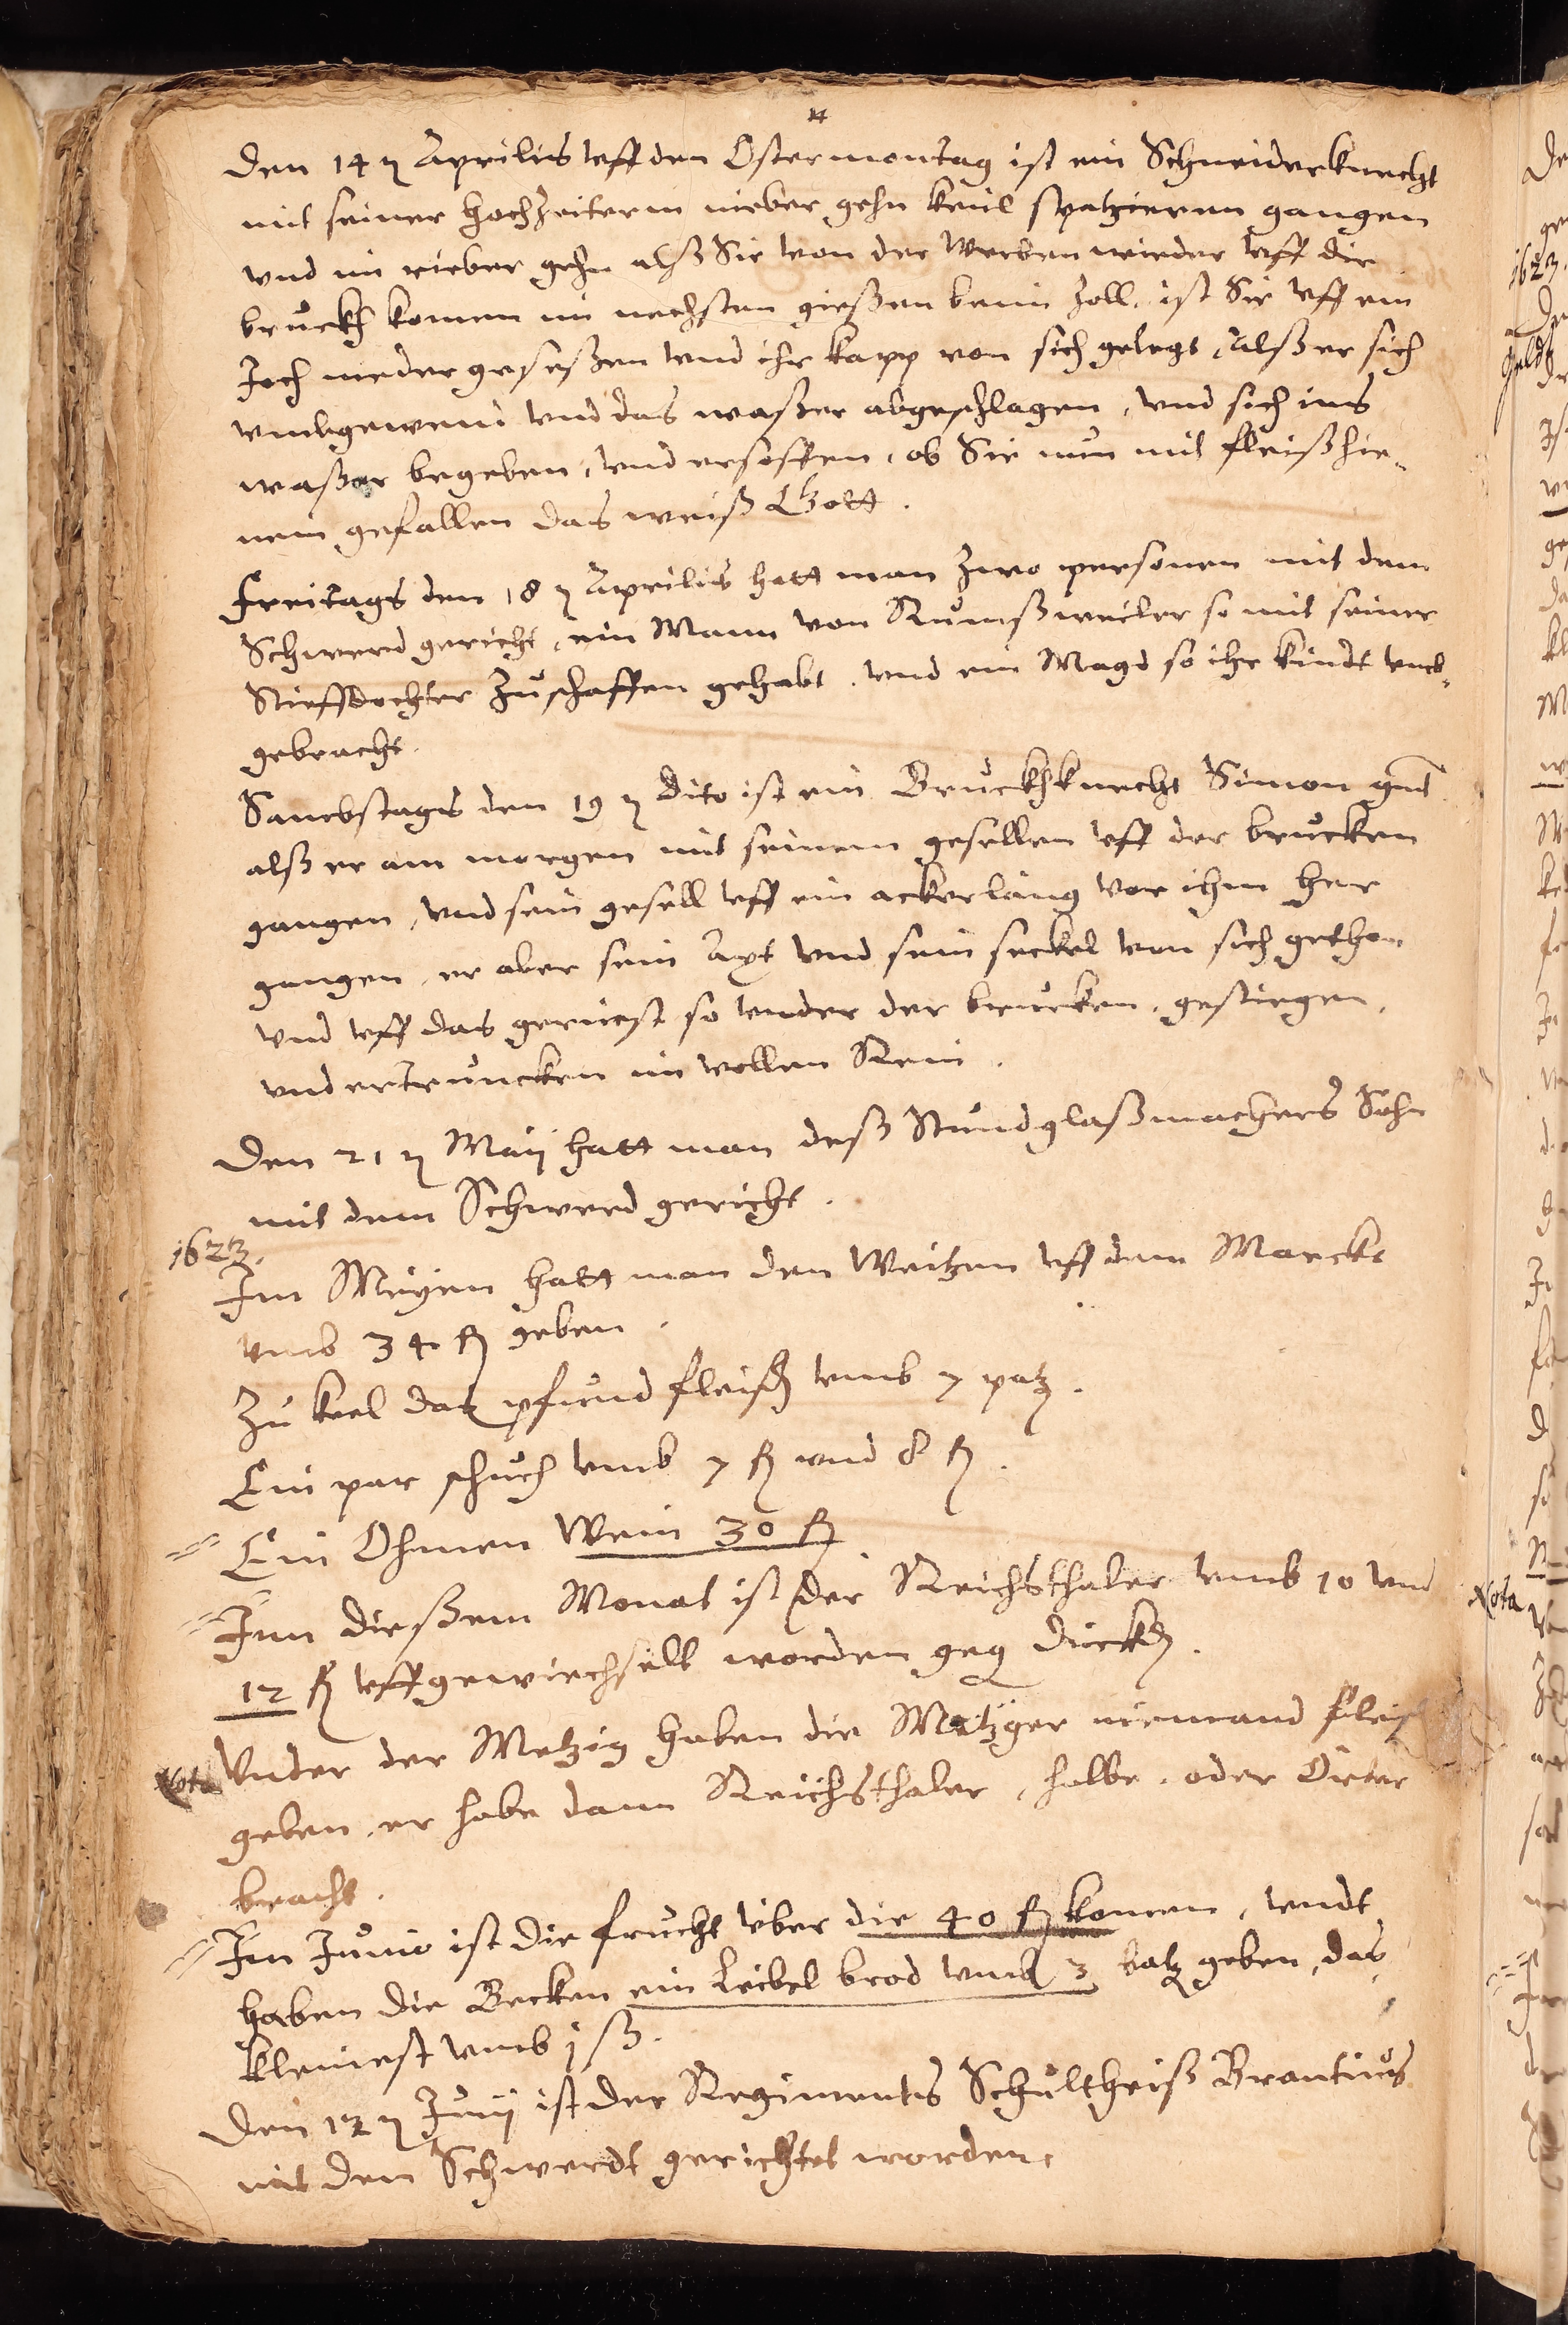 Den 14 n Aprilis uff den Ostermontag ist ein Schneiderknecht
mit seiner Hochzeiterin nieber gehn Keül spatzieren gangen
und im rieber gehn alß Sie von der Werben wieder uff die
bruckh komen im nechsten gießen beim Zoll, ist Sie uff ein
Joch nieder geseßen und ihr kapp von sich gelegt, Alß er sich
umbgewend und das waßer abgeschlagen, und sich ins
waßer begeben, und ersoffen, ob Sie nun mit fleiß hie-
nein gefallen das weiß Gott.
Freitags den 18 n Aprilis hatt man zwo personen mit dem
Schwerd gericht, ein Mann von Rumßweiler so mit seiner
Stieffdochter zu schaffen gehabt. und ein Magd so ihr kindt umb-
gebracht.
Sambstags den 19 n dito ist ein Bruckhknecht Simon gnt
alß er am morgen mit seinem gesellen uff der brucken
gangen, und sein gesell uff ein ackerläng vor ihm her
gangen, er aber sein Axt und sein seckel von sich gethon
und uff das geriest so under der brucken, gestiegen,
und ertruncken im vollen Rein.
Den 21 n Maij hatt man deß Stundglaßmachers Sohn
mit dem Schwerd gericht.
1623.
Im Meyen hatt man den Weitzen uff dem Marckt
umb 34 fl geben.
Zu keel das pfund fleisch umb 7 patz.
Ein par schuch umb 7 fl und 8 fl.
Ein Ohmen Wein 30 fl
Inn dießem Monat ist der Reichsthaler umb 10 und
12 fl uffgewiechselt worden geg dückh.
Nota Under der Metzig haben die Metzger niemand fleis
geben, er habe dann Reichsthaler, halbe, oder Örter
bracht.
Im Junio ist die frucht über die 40 fl komen, undt
haben die Becken ein Leibel brod umb 3 batz geben, das
kleinest umb j ß.
Den 12 n Junij ist der Regiments Schultheiß Brantius
mit dem Schwerdt gerichtet worden.